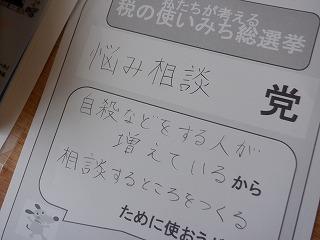 私たちが考える
税の使いみち総選挙
悩み相談 党
自殺などをする人が
増えているから
相談するところをつくる
ために使おう